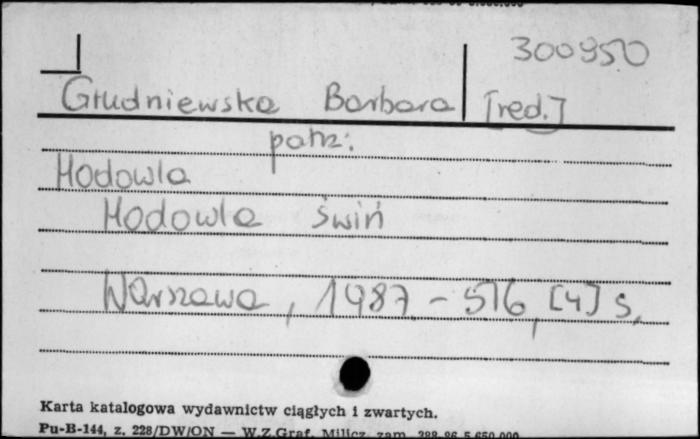 300950
Grudniewska Barbara [red.]
patrz:
Hodowla
Hodowla świń
Warszawa, 1987. - 516, [4] s.
Karta katalogowa wydawnictw ciągłych i zwartych.
Pu-B-144, z. 228/DW/ON — W.Z.Graf. Milicz zam. 388-86 5.650.000